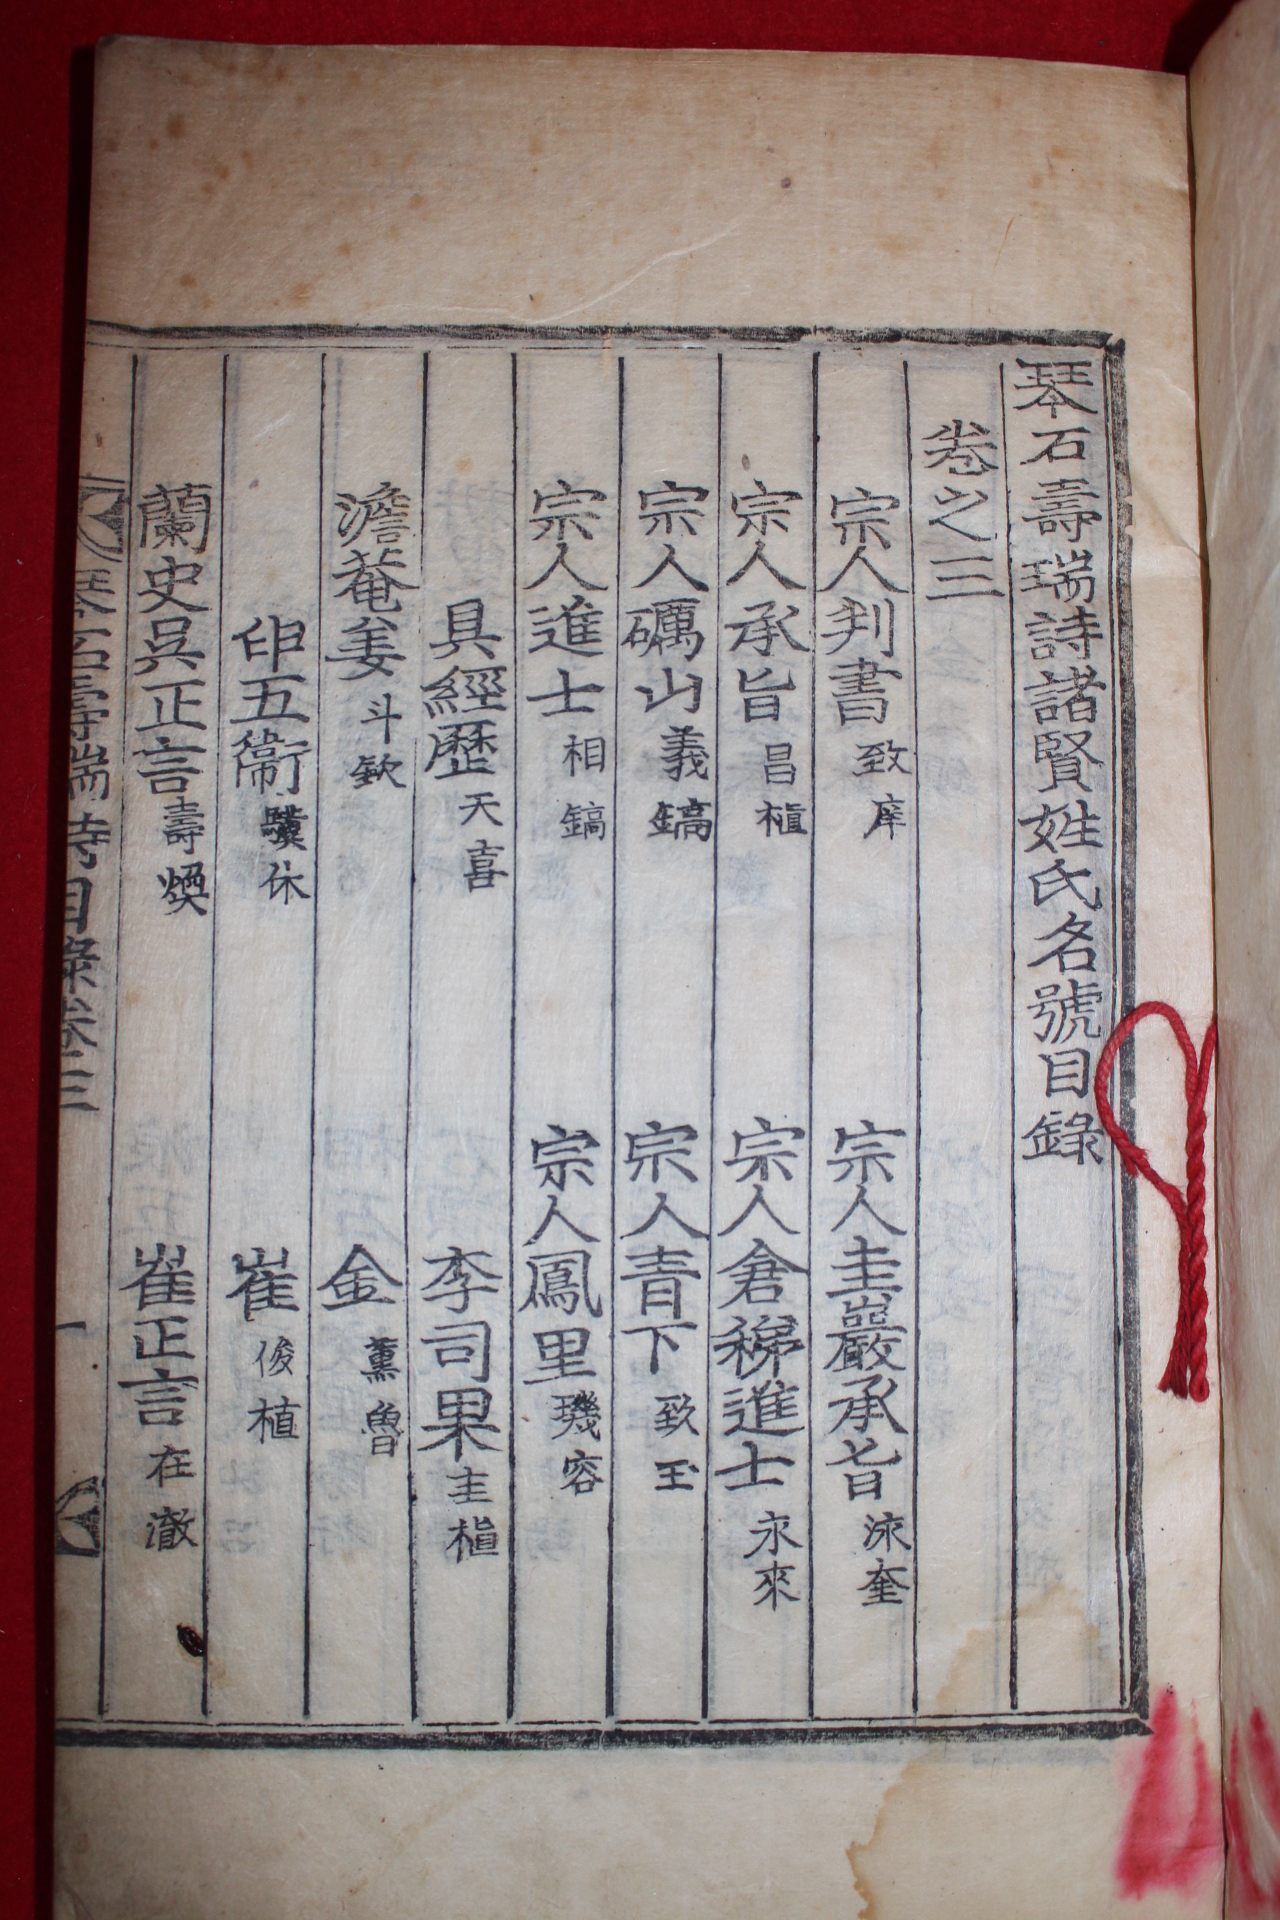 琴石壽瑞詩諸賢姓氏名號目錄
卷之三
宗人判書 致庠 宗人圭巖承旨 泳奎
宗人承旨 昌植 宗人倉稊進士 永來
宗人礪山 義鎬 宗人青下 致玉
宗人進士 相鎬 宗人鳳里 璣容
具經歷 天喜 李司果 圭植
澹菴姜 斗欽 金 薰魯
印五衛 驥休 崔 俊植
蘭史吳正言 壽煥 崔正言 在澈
琴石壽瑞詩目錄卷三 一